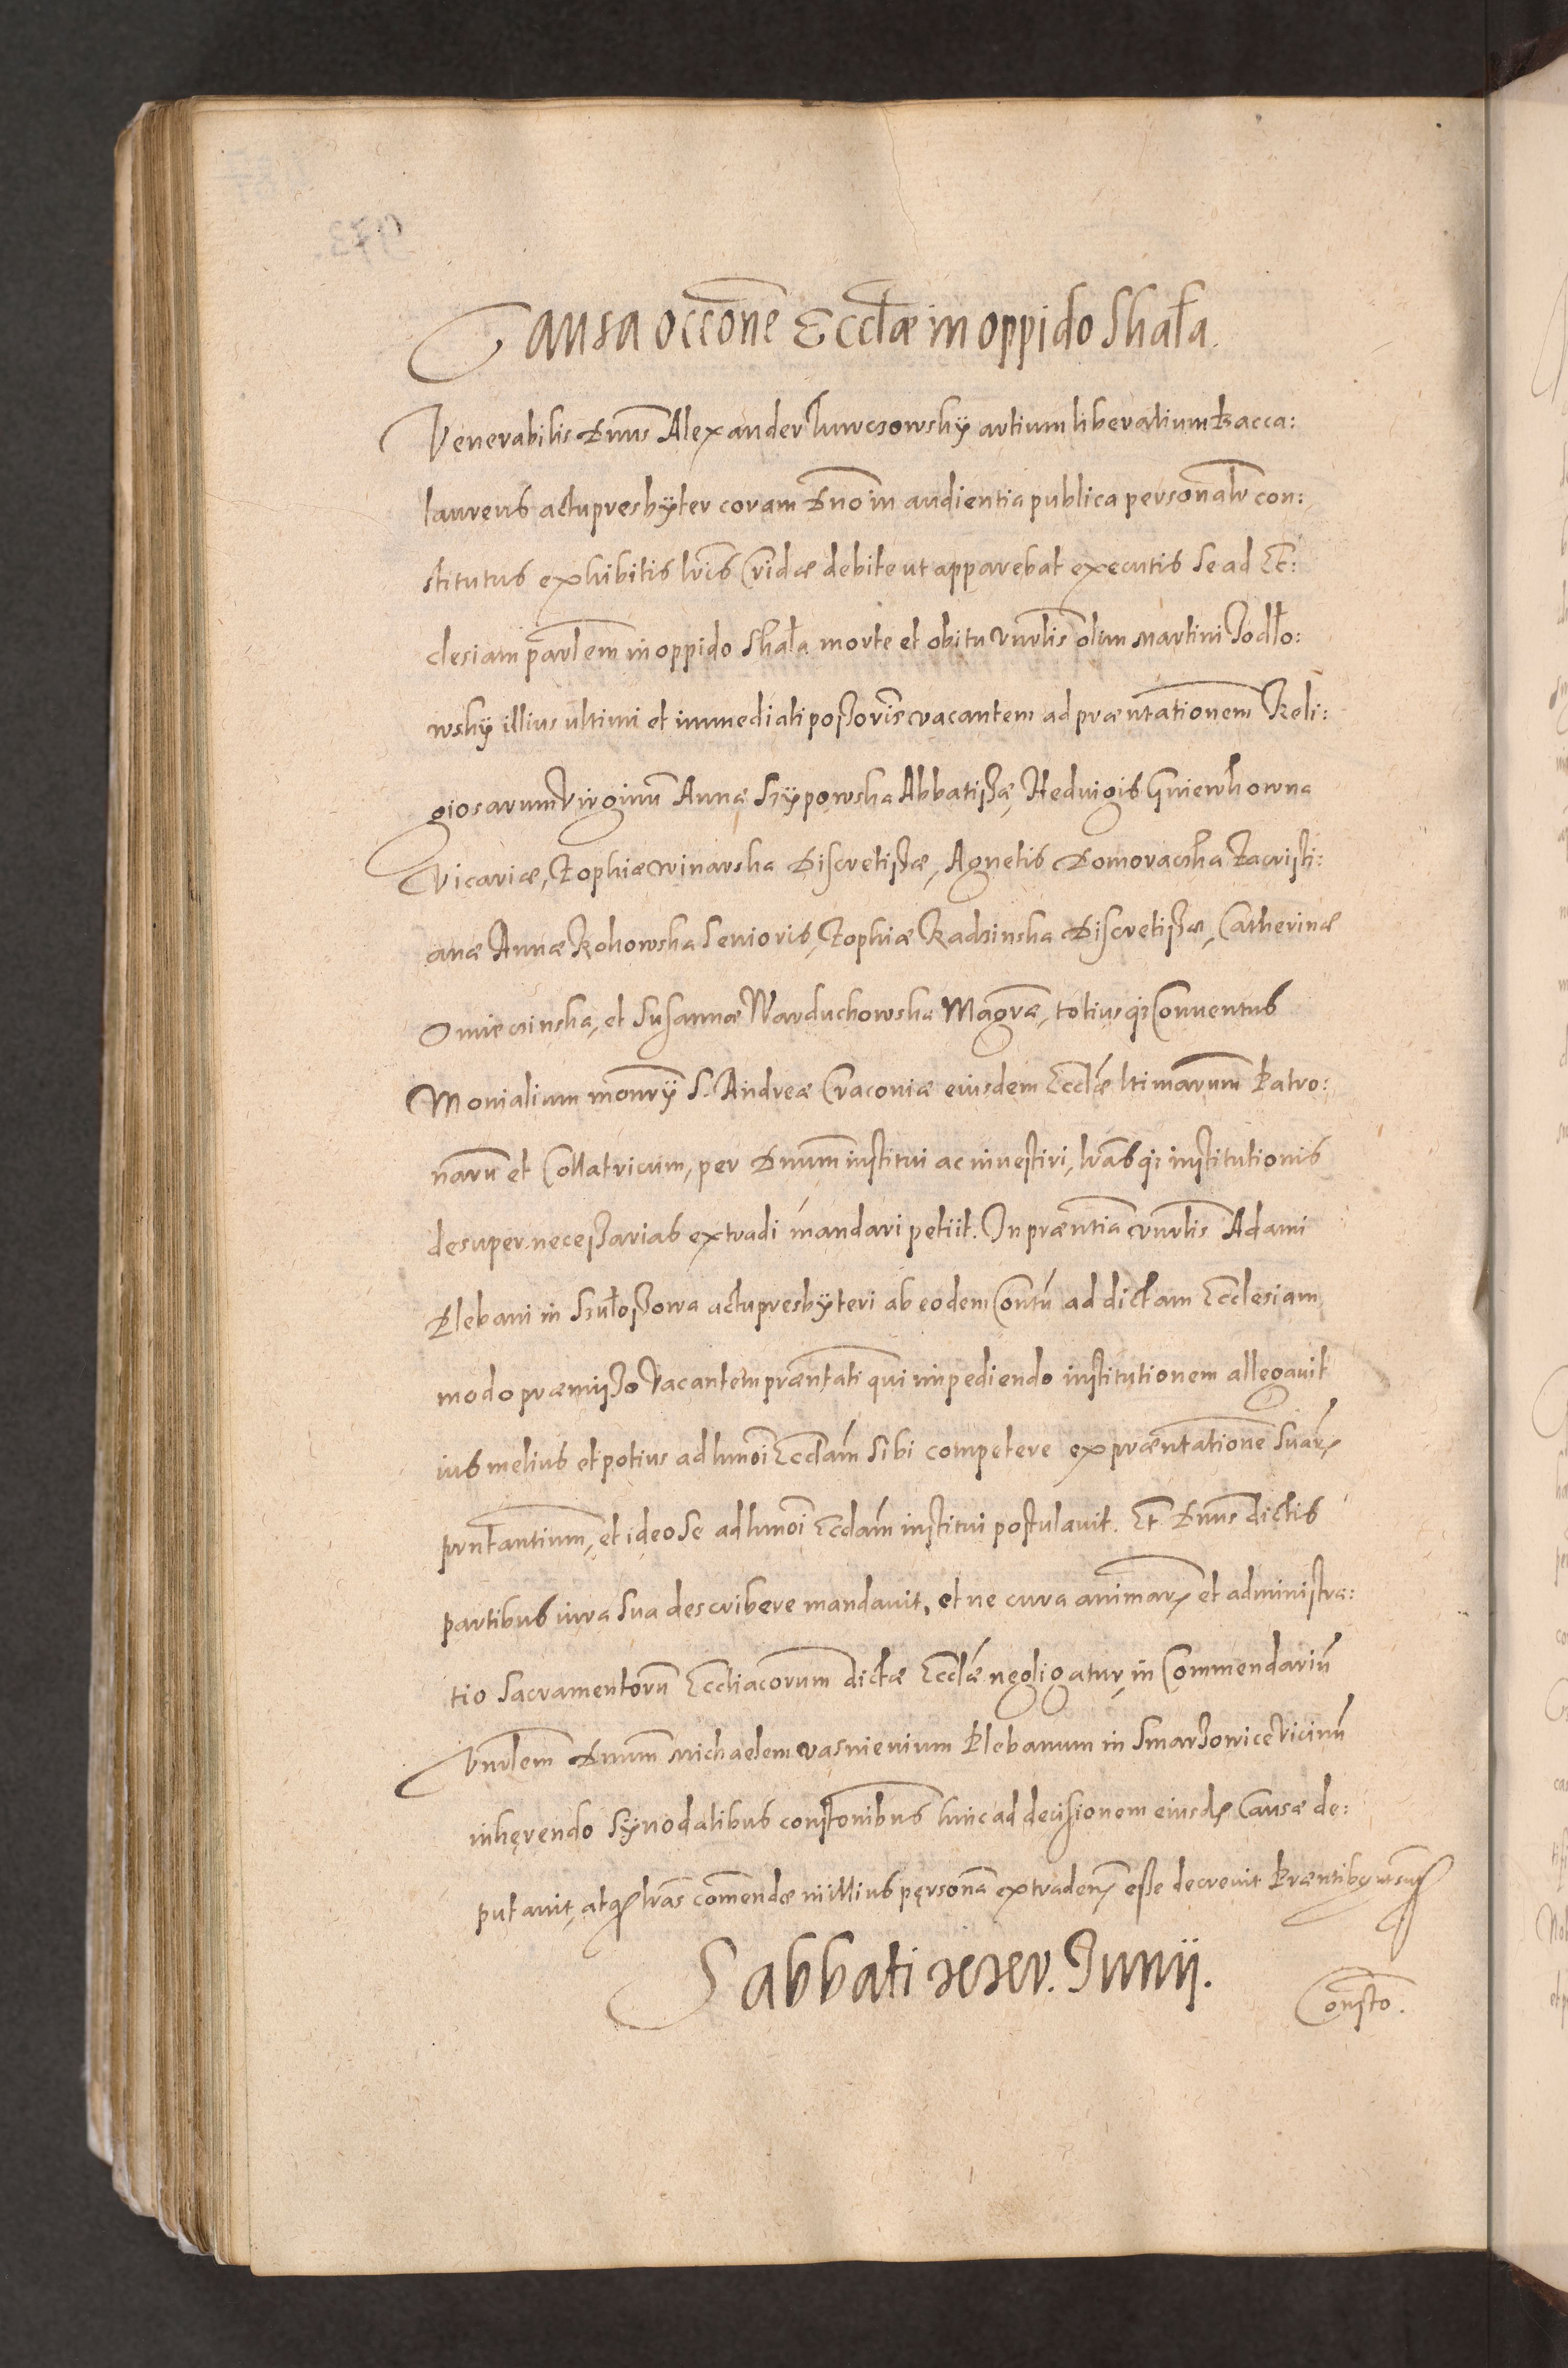 Causa occone Ecclæ in oppido Skała.
Venerabilis Dnus Alexander Iurczowskÿ artium liberalium Bacca:
laureus actu presbÿter coram Dno in audientia publica personalr con:
stitutus exhibitis lris Cridæ debite ut apparebat executis se ad Ec:
clesiam parlem in oppido Skała morte et obitu vnrlis olim Martini Iodło:
wskÿ illius ultimi et immediati possoris vacantem ad præntationem Reli:
giosarum Virginu Annæ Szÿpowska Abbatissæ, Hedvigis Gniewkowna
Vicariæ, Zophiæ Winarska Discretissæ, Agnetis Domoraczka Zacristi:
anæ Annæ Rokowska Senioris, Zophiæ Radzinska Discretissæ, Catherinæ
Omieczinska, et Susannæ Warduchowska Magræ, totiusq; Conuentus
Monialium monrÿ S. Andreæ Cracouiæ eiusdem Ecclæ ltimarum Patro:
naru et Collatricum, per Dnum institui ac inuestiri, lrasq; institutionis
desuper necessarias extradi mandari petiit. In præntia vnrlis Adami
Plebani in Sułossowa actu presbÿteri ab eodem Contu ad dictam Ecclesiam
modo præmisso Vacantem præntati qui impediendo institutionem allegauit
ius melius et potius ad hmoi Ecclam sibi competere ex præntatione suar
prntantium, et ideo se ad hmoi Ecclam institui postulauit. Et Dnus dictis
partibus iura sua describere mandauit, et ne cura animar et administra:
tio Sacramentoru Eccliacorum dictæ Ecclæ negligatur, in Commendariu
Vnrlem Dnum Michaelem Vasnieuium Plebanum in Smarzowice Vicinu
inhęrendo Sÿnodalibus constonibus hinc ad decisionem eiusd Causæ de:
putauit, atq lras comendæ in illius persona extraden esse decreuit Præntib ut su
Sabbati xxv. Iunii.
Consto.